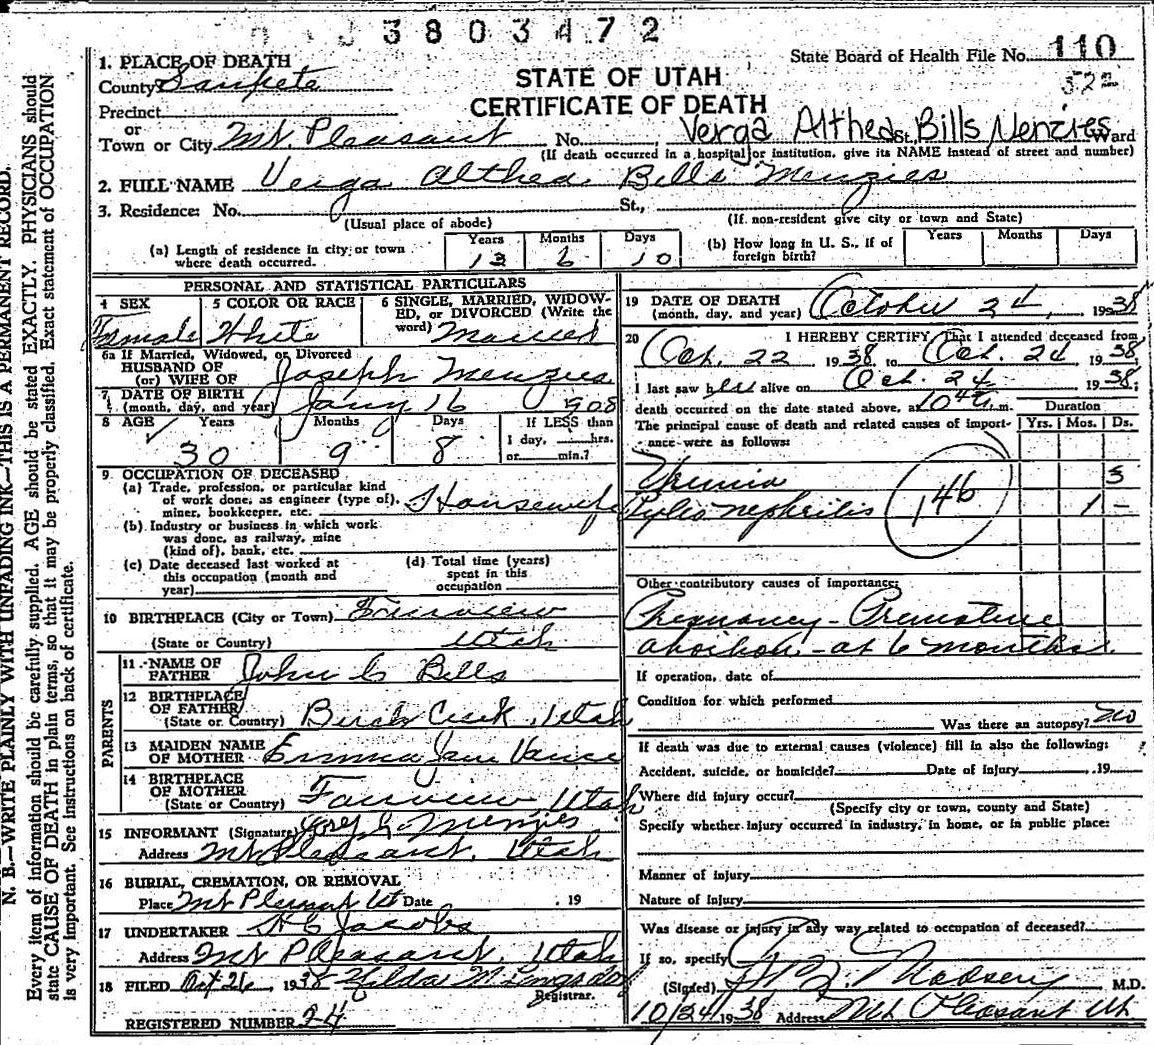 3803472
State Board of Health File No. 110
522
STATE OF UTAH
CERTIFICATE OF DEATH
1. PLACE OF DEATH
County Sanpete
Precinct
or
Town or City Mt. Pleasant No. Verga Althea St. Bills Menzies Ward
(If death occurred in a hospital or institution, give its NAME instead of street and number)
2. FULL NAME Verga Althea Bills Menzies
3. Residence: No. St.,
(Usual place of abode) (If non-resident give city or town and State)
(a) Length of residence in city or town where death occurred. Years 13 Months 6 Days 10
(b) How long in U. S., if of foreign birth? Years Months Days
PERSONAL AND STATISTICAL PARTICULARS
4 SEX Female
5 COLOR OR RACE White
6 SINGLE, MARRIED, WIDOW-
ED, or DIVORCED (Write the
word) Married
6a If Married, Widowed, or Divorced
HUSBAND OF
(or) WIFE OF Joseph Menzies
7 DATE OF BIRTH
(month, day, and year) Jany 16 1908
8 AGE Years 30 Months 9 Days 8
If LESS than
1 day, hrs.
or min.?
9 OCCUPATION OF DECEASED
(a) Trade, profession, or particular kind
of work done, as engineer (type of),
miner, bookkeeper, etc. Housewife
(b) Industry or business in which work
was done, as railway, mine
(kind of), bank, etc.
(c) Date deceased last worked at
this occupation (month and
year)
(d) Total time (years)
spent in this
occupation
10 BIRTHPLACE (City or Town) Fairview
(State or Country) Utah
PARENTS
11 NAME OF
FATHER John C Bills
12 BIRTHPLACE
OF FATHER
(State or Country) Birch Creek, Utah
13 MAIDEN NAME
OF MOTHER Emma Jane Vance
14 BIRTHPLACE
OF MOTHER
(State or Country) Fairview, Utah
15 INFORMANT (Signature) Menzies
Address Mt Pleasant, Utah
16 BURIAL, CREMATION, OR REMOVAL
Place Mt Pleasant Ut Date , 19
17 UNDERTAKER Jacobs
Address Mt Pleasant, Utah
18 FILED Oct 26, 1938 Hilda M. Longsdorf
Registrar.
REGISTERED NUMBER 24
19 DATE OF DEATH
(month, day, and year) October 24, 1938
20 I HEREBY CERTIFY, That I attended deceased from
Oct. 22 1938 to Oct. 24 1938,
I last saw her alive on Oct. 24 1938,
death occurred on the date stated above, at m.
The principal cause of death and related causes of import-
ance were as follows:
Duration
Yrs. Mos. Ds.
Uremia 3
Pyelo nephritis 1 -
146
Other contributory causes of importance:
Pregnancy - Premature
abortion - at 6 months.
If operation, date of
Condition for which performed
Was there an autopsy? No
If death was due to external causes (violence) fill in also the following:
Accident, suicide, or homicide? Date of Injury , 19
Where did injury occur?
(Specify city or town, county and State)
Specify whether injury occurred in industry, in home, or in public place:
Manner of injury
Nature of Injury
Was disease or injury in any way related to occupation of deceased?
If so, specify
(Signed) M.D.
10/24/1938 Address Mt Pleasant Ut.
N. B.—WRITE PLAINLY WITH UNFADING INK—THIS IS A PERMANENT RECORD.
Every item of information should be carefully supplied. AGE should be stated EXACTLY. PHYSICIANS should
state CAUSE OF DEATH in plain terms, so that it may be properly classified. Exact statement of OCCUPATION
is very important. See instructions on back of certificate.